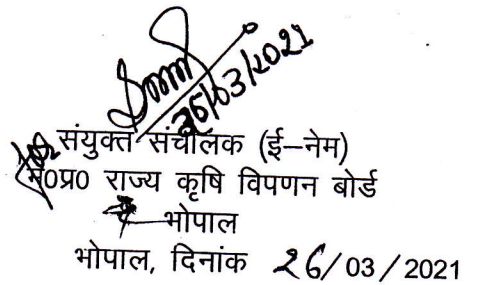 26/03/2021
संयुक्त संचालक (ई–नेम)
म0प्र0 राज्य कृषि विपणन बोर्ड
भोपाल
भोपाल, दिनांक 26/03/2021